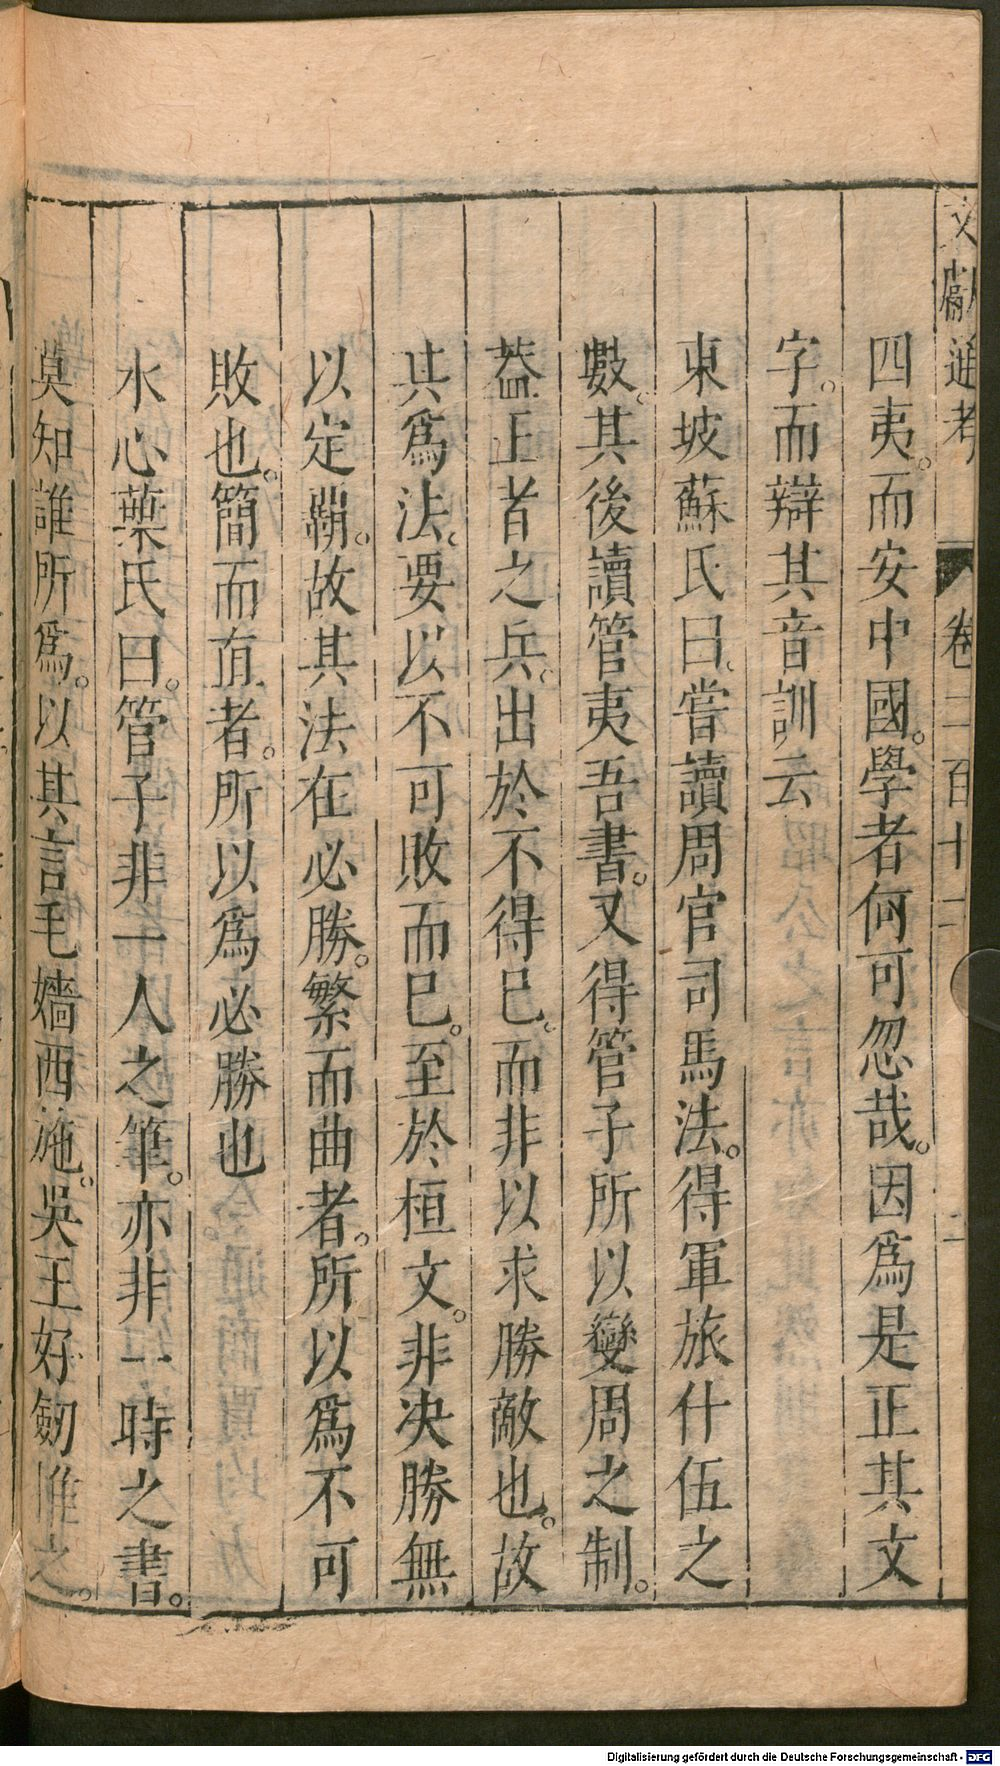 文獻通考 卷二百十二 二
四夷。而安中國。學者何可忽哉。因爲是正其文
字。而辯其音訓云
東坡蘇氏曰。嘗讀周官司馬法。得軍旅什伍之
數。其後讀管夷吾書。又得管子所以變周之制。
葢王者之兵。出於不得已。而非以求勝敵也。故
其爲法。要以不可敗而已。至於桓文。非决勝無
以定霸。故其法在必勝。繁而曲者。所以爲不可
敗也。簡而直者。所以爲必勝也
水心葉氏曰。管子非一人之筆。亦非一時之書。
莫知誰所爲。以其言毛嬙西施。吳王好劒推之。
Digitalisierung gefördert durch die Deutsche Forschungsgemeinschaft - DFG